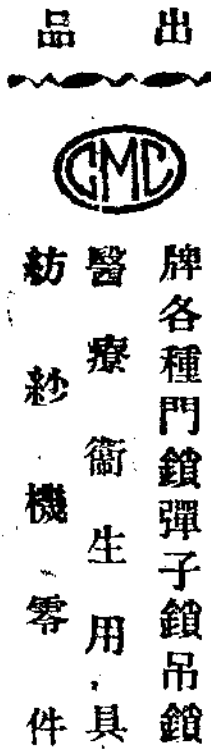 出品
CMC
牌各種門鎖彈子鎖吊鎖
醫療衛生用具
紡紗機零件